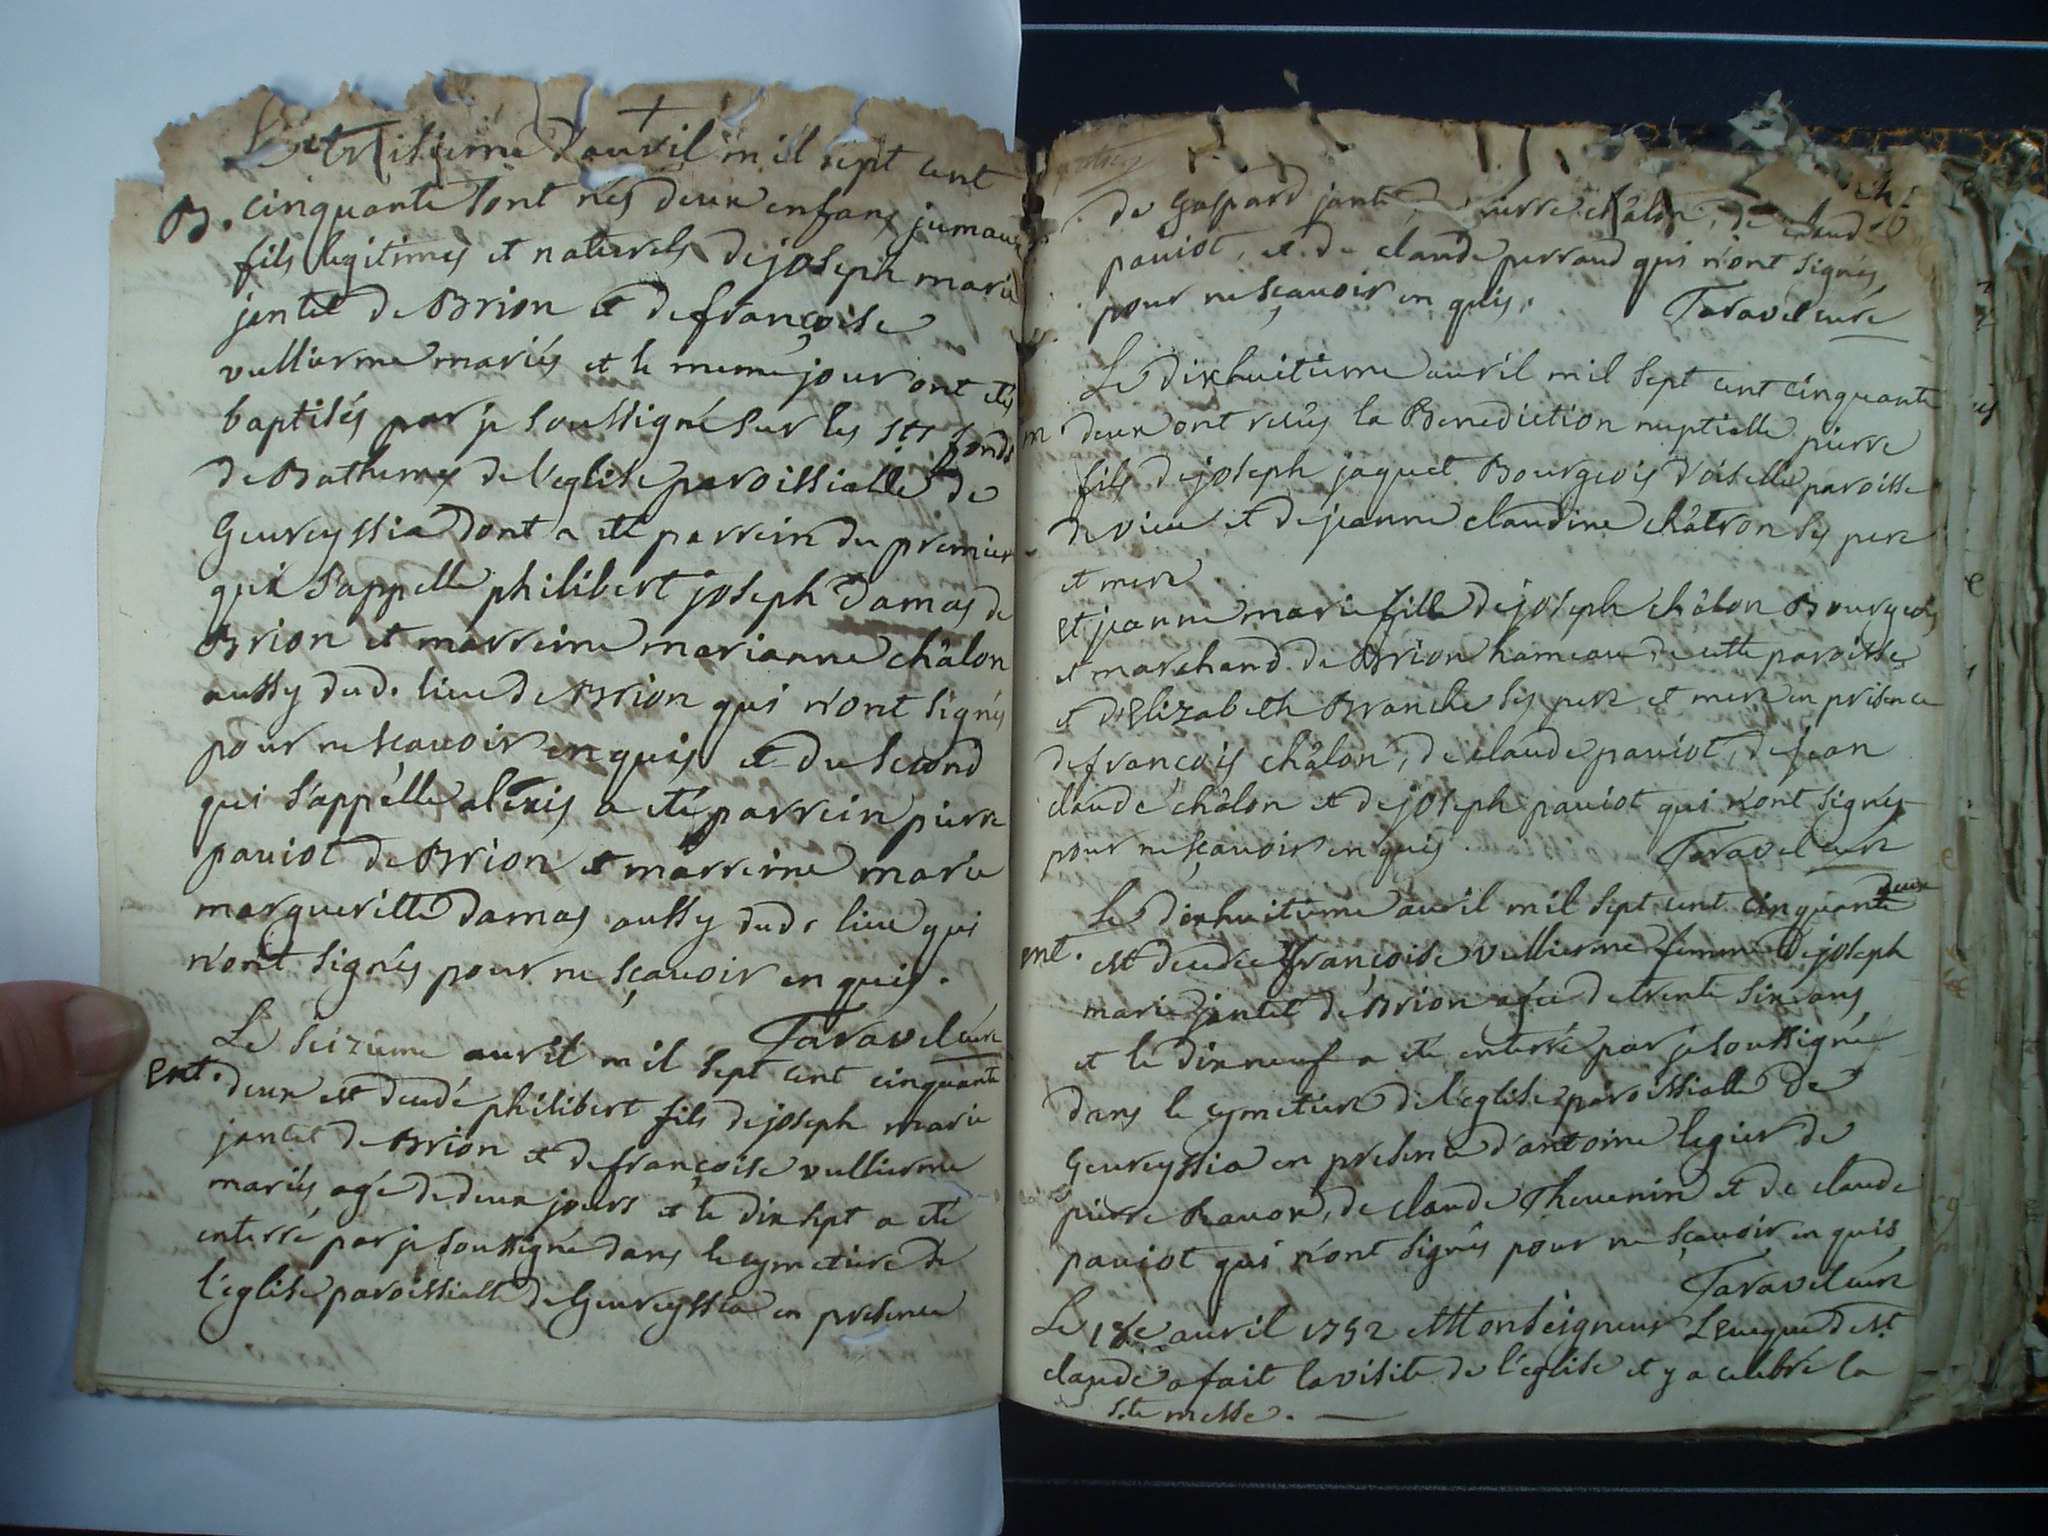 Le treisieme d'avril mil sept cent
B. cinquante sont nés deux enfans jumaux
fils legitimes et naturels de joseph marie
jantet de Brion et de françoise
vullierme mariés et le meme jour ont etés
baptisés par je soussigné sur les sts fonds
de Bathemes de l'eglise paroissialle de
Geureyssia dont a eté parrein du premier
qui s'appelle philibert joseph Damas de
Brion et marreine marianne châlon
aussy dud. lieu de Brion qui n'ont signés
pour ne sçavoir enquis et du second
qui s'appelle alexis a eté parrein pierre
paviot de Brion et marreine marie
margueritte damas aussy dud. lieu qui
n'ont signés pour ne sçavoir en quis.
Taravel curé
Le seizieme avril mil sept cent cinquante
Ent. deux est decedé philibert fils de joseph marie
jantet de Brion et de françoise vullierme
mariés agé de deux jours et le dix sept a eté
enterré par je soussigné dans le cymetiere de
l'eglise paroissialle de Geureyssia en presence
de Gaspard jantet, pierre châlon, de claude
paviot, et de claude perraud qui n'ont signés
pour ne sçavoir en quis. Taravel curé
Le dixhuitieme avril mil sept cent cinquante
m. deux ont recûs la Benediction nuptielle pierre
fils de joseph jaquet Bourgeois d'oiselle paroisse
de vieu et de jeanne claudine châtron ses pere
et mere
et jeanne marie fille de joseph châlon Bourgeois
et marchand de Brion hameau de cette paroisse
et d'Elizabeth Branche ses pere et mere en presence
de françois châlon, de claude paviot, de jean
claude châlon et de joseph paviot qui n'ont signés
pour ne sçavoir en quis. Taravel curé
deux
Le dixhuitieme avril mil sept cent cinquante
ent. est decedée françoise vullierme femme de joseph
marie jantet de Brion agée de trente six ans
et le dixneuf a eté enterré par je soussigné
dans le cymetiere de l'eglise paroissialle de
Geureyssia en presence d'antoine legier de
pierre Ravor, de claude Thevenin et de claude
paviot qui n'ont signés pour ne sçavoir en quis
Taravel curé
Le 18e avril 1752 Monseigneur L'eveque de st.
claude a fait la visite de l'eglise et y a celebré la
s.te messe.